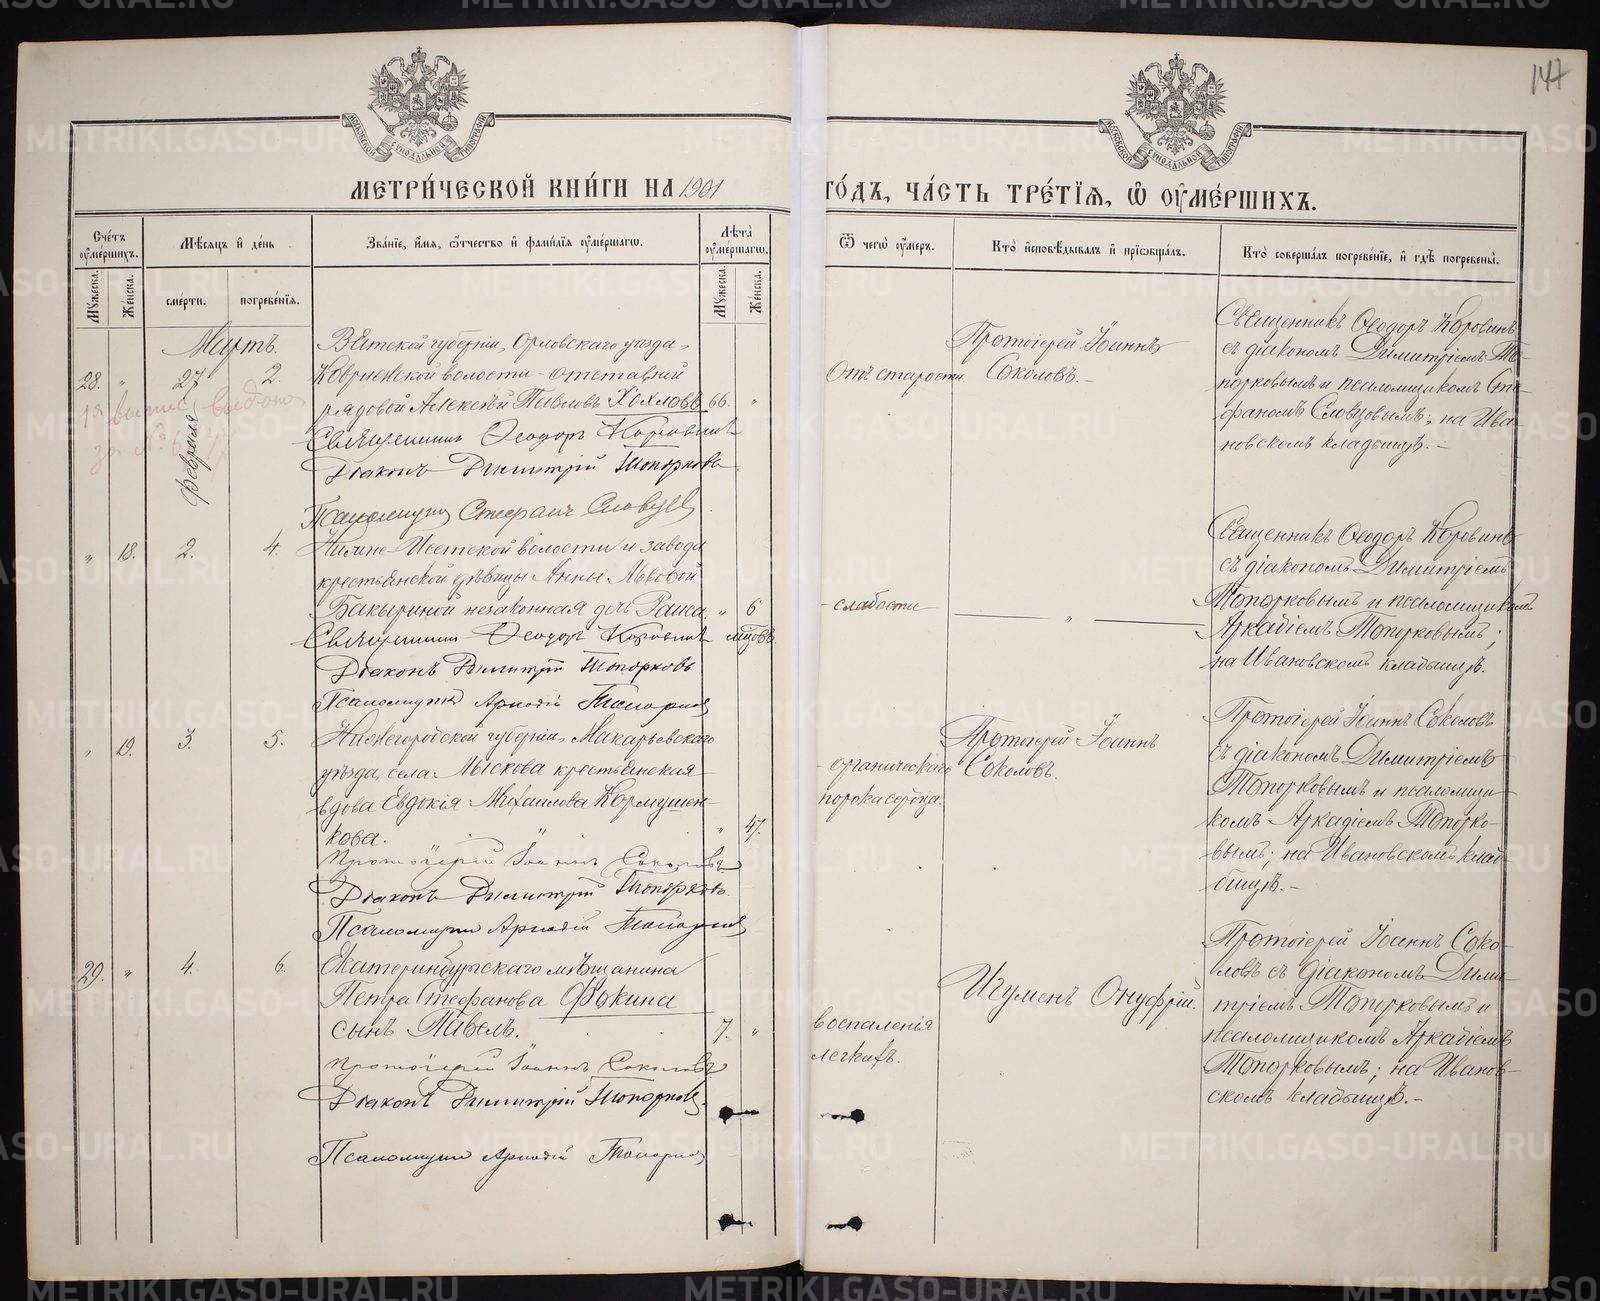 147
МЕТРИЧЕСКОЙ КНИГИ НА 1901 ГОДЪ, ЧАСТЬ ТРЕТІЯ, Ѡ ОУМЕРШИХЪ.
Счетъ оумершихъ.
Мужеска.
Женска.
Мѣсяцъ и день
смерти.
погребенія.
Званіе, имя, ѿчество и фамилія оумершагѡ.
Лѣта оумершагѡ.
Мужеска.
Женска.
Ѿ чегѡ оумеръ.
Кто исповѣдывалъ и пріѡбщалъ.
Кто совершалъ погребеніе, и гдѣ погребены.
Мартъ.
28. " 27 февраля 2.
Вятской губерніи, Орловскаго уѣзда,
волости отставной
рядовой Алексѣй Павловъ Хохловъ 66. "
Отъ старости
Протоіерей Іоаннъ
Соколовъ.-
Священникъ Ѳеодоръ Коровинъ
съ діакономъ Димитріемъ То-
порковымъ и псаломщикомъ Сте-
фаномъ Словцовымъ; на Ива-
новскомъ кладбищѣ.-
Священникъ Ѳеодоръ Коровинъ
Діаконъ Димитрій Топорковъ
Псаломщикъ Стефанъ Словцовъ
" 18. 2. 4.
Нижне-Исетской волости и завода
крестьянской дѣвицы Анны Львовой
Бакыриной незаконная дочь Раиса. " 6 мѣсяцовъ.
- слабости
"
Священникъ Ѳеодоръ Коровинъ
съ діакономъ Димитріемъ
Топорковымъ и псаломщикомъ
Аркадіемъ Топорковымъ;
на Ивановскомъ кладбищѣ.
Священникъ Ѳеодоръ Коровинъ
Діаконъ Димитрій Топорковъ
Псаломщикъ Аркадій Топорковъ
" 19. 3. 5.
Нижегородской губерніи, Макарьевскаго
уѣзда, села Лыскова крестьянская
вдова Евдокія Михаилова Кормушен-
кова. " 47.
- органическаго
порока сердца.
Протоіерей Іоаннъ
Соколовъ.
Протоіерей Іоаннъ Соколовъ
съ діакономъ Димитріемъ
Топорковымъ и псаломщи-
комъ Аркадіемъ Топорко-
вымъ; на Ивановскомъ клад-
бищѣ.-
Протоіерей Іоаннъ Соколовъ
Діаконъ Димитрій Топорковъ.
Псаломщикъ Аркадій Топорковъ
29. " 4. 6.
Екатеринбургскаго мѣщанина
Петра Стефанова Фокина
сынъ Павелъ. 7. "
воспаленія
легкихъ.
Игуменъ Онуфрій.
Протоіерей Іоаннъ Соко-
ловъ съ діакономъ Дими-
тріемъ Топорковымъ и
псаломщикомъ Аркадіемъ
Топорковымъ; на Иванов-
скомъ кладбищѣ.-
Протоіерей Іоаннъ Соколовъ
Діаконъ Димитрій Топорковъ
Псаломщикъ Аркадій Топорковъ
METRIKI.GASO-URAL.RU